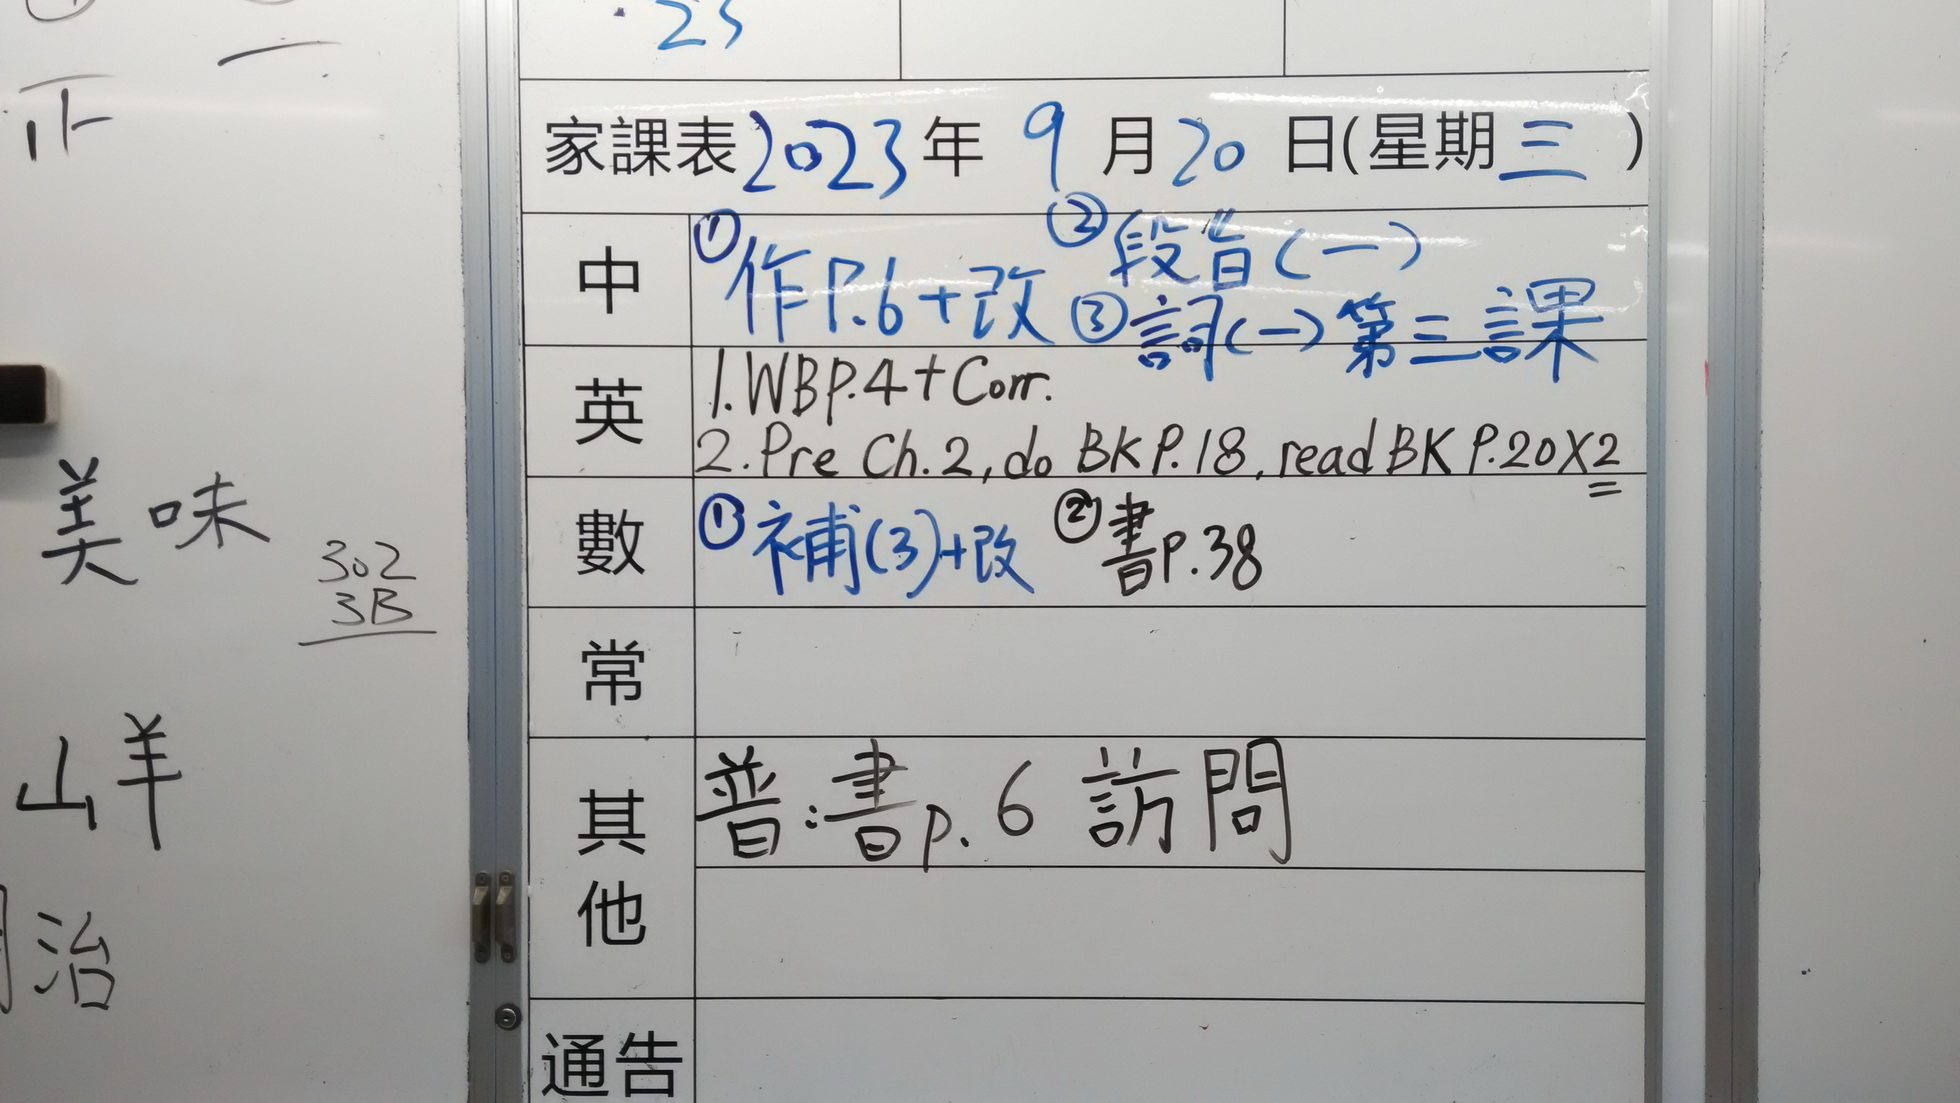 23
家課表2023年 9月20日(星期三)
中
①作P.6+改 ②段旨(一)
③詞(一)第三課
英
1.WBP.4+Corr.
2.Pre Ch.2,do BK P.18,read BK P.20X2
數
①補(3)+改 ②書p.38
常
其他
普:書p.6 訪問
通告
美味
302
3B
山羊
治